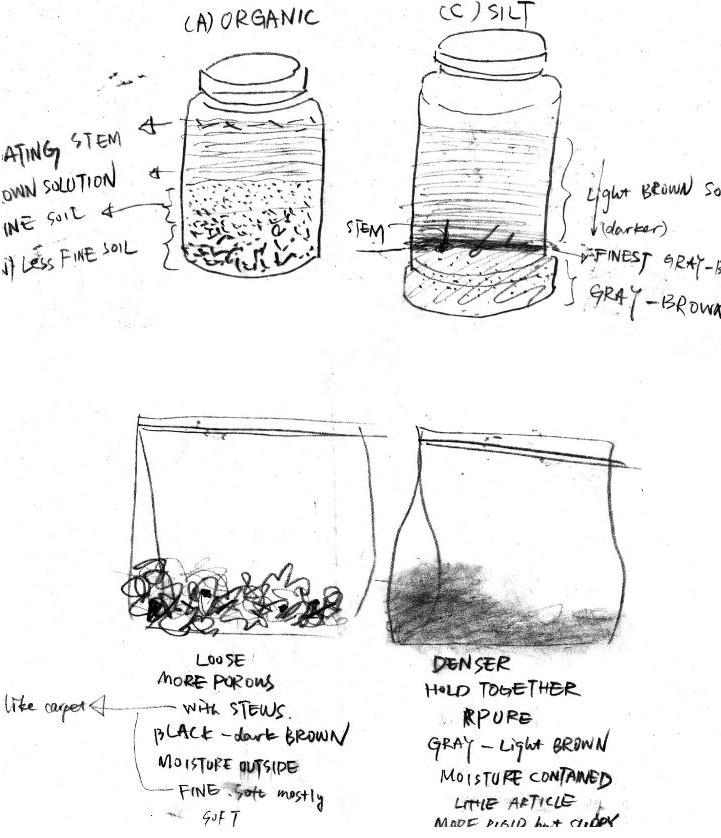 (A) ORGANIC
ATING STEM
OWN SOLUTION
INE SOIL
LESS FINE SOIL
(C) SILT
STEM
Light BROWN SO
(darker)
FINEST GRAY-B
GRAY-BROWN
LOOSE
MORE POROUS
like carpet
with STEWS.
BLACK-dark BROWN
MOISTURE OUTSIDE
FINE. Soft mostly
SOFT
DENSER
HOLD TOGETHER
PURE
GRAY-Light BROWN
MOISTURE CONTAINED
LITTLE ARTICLE
MORE RIGID but